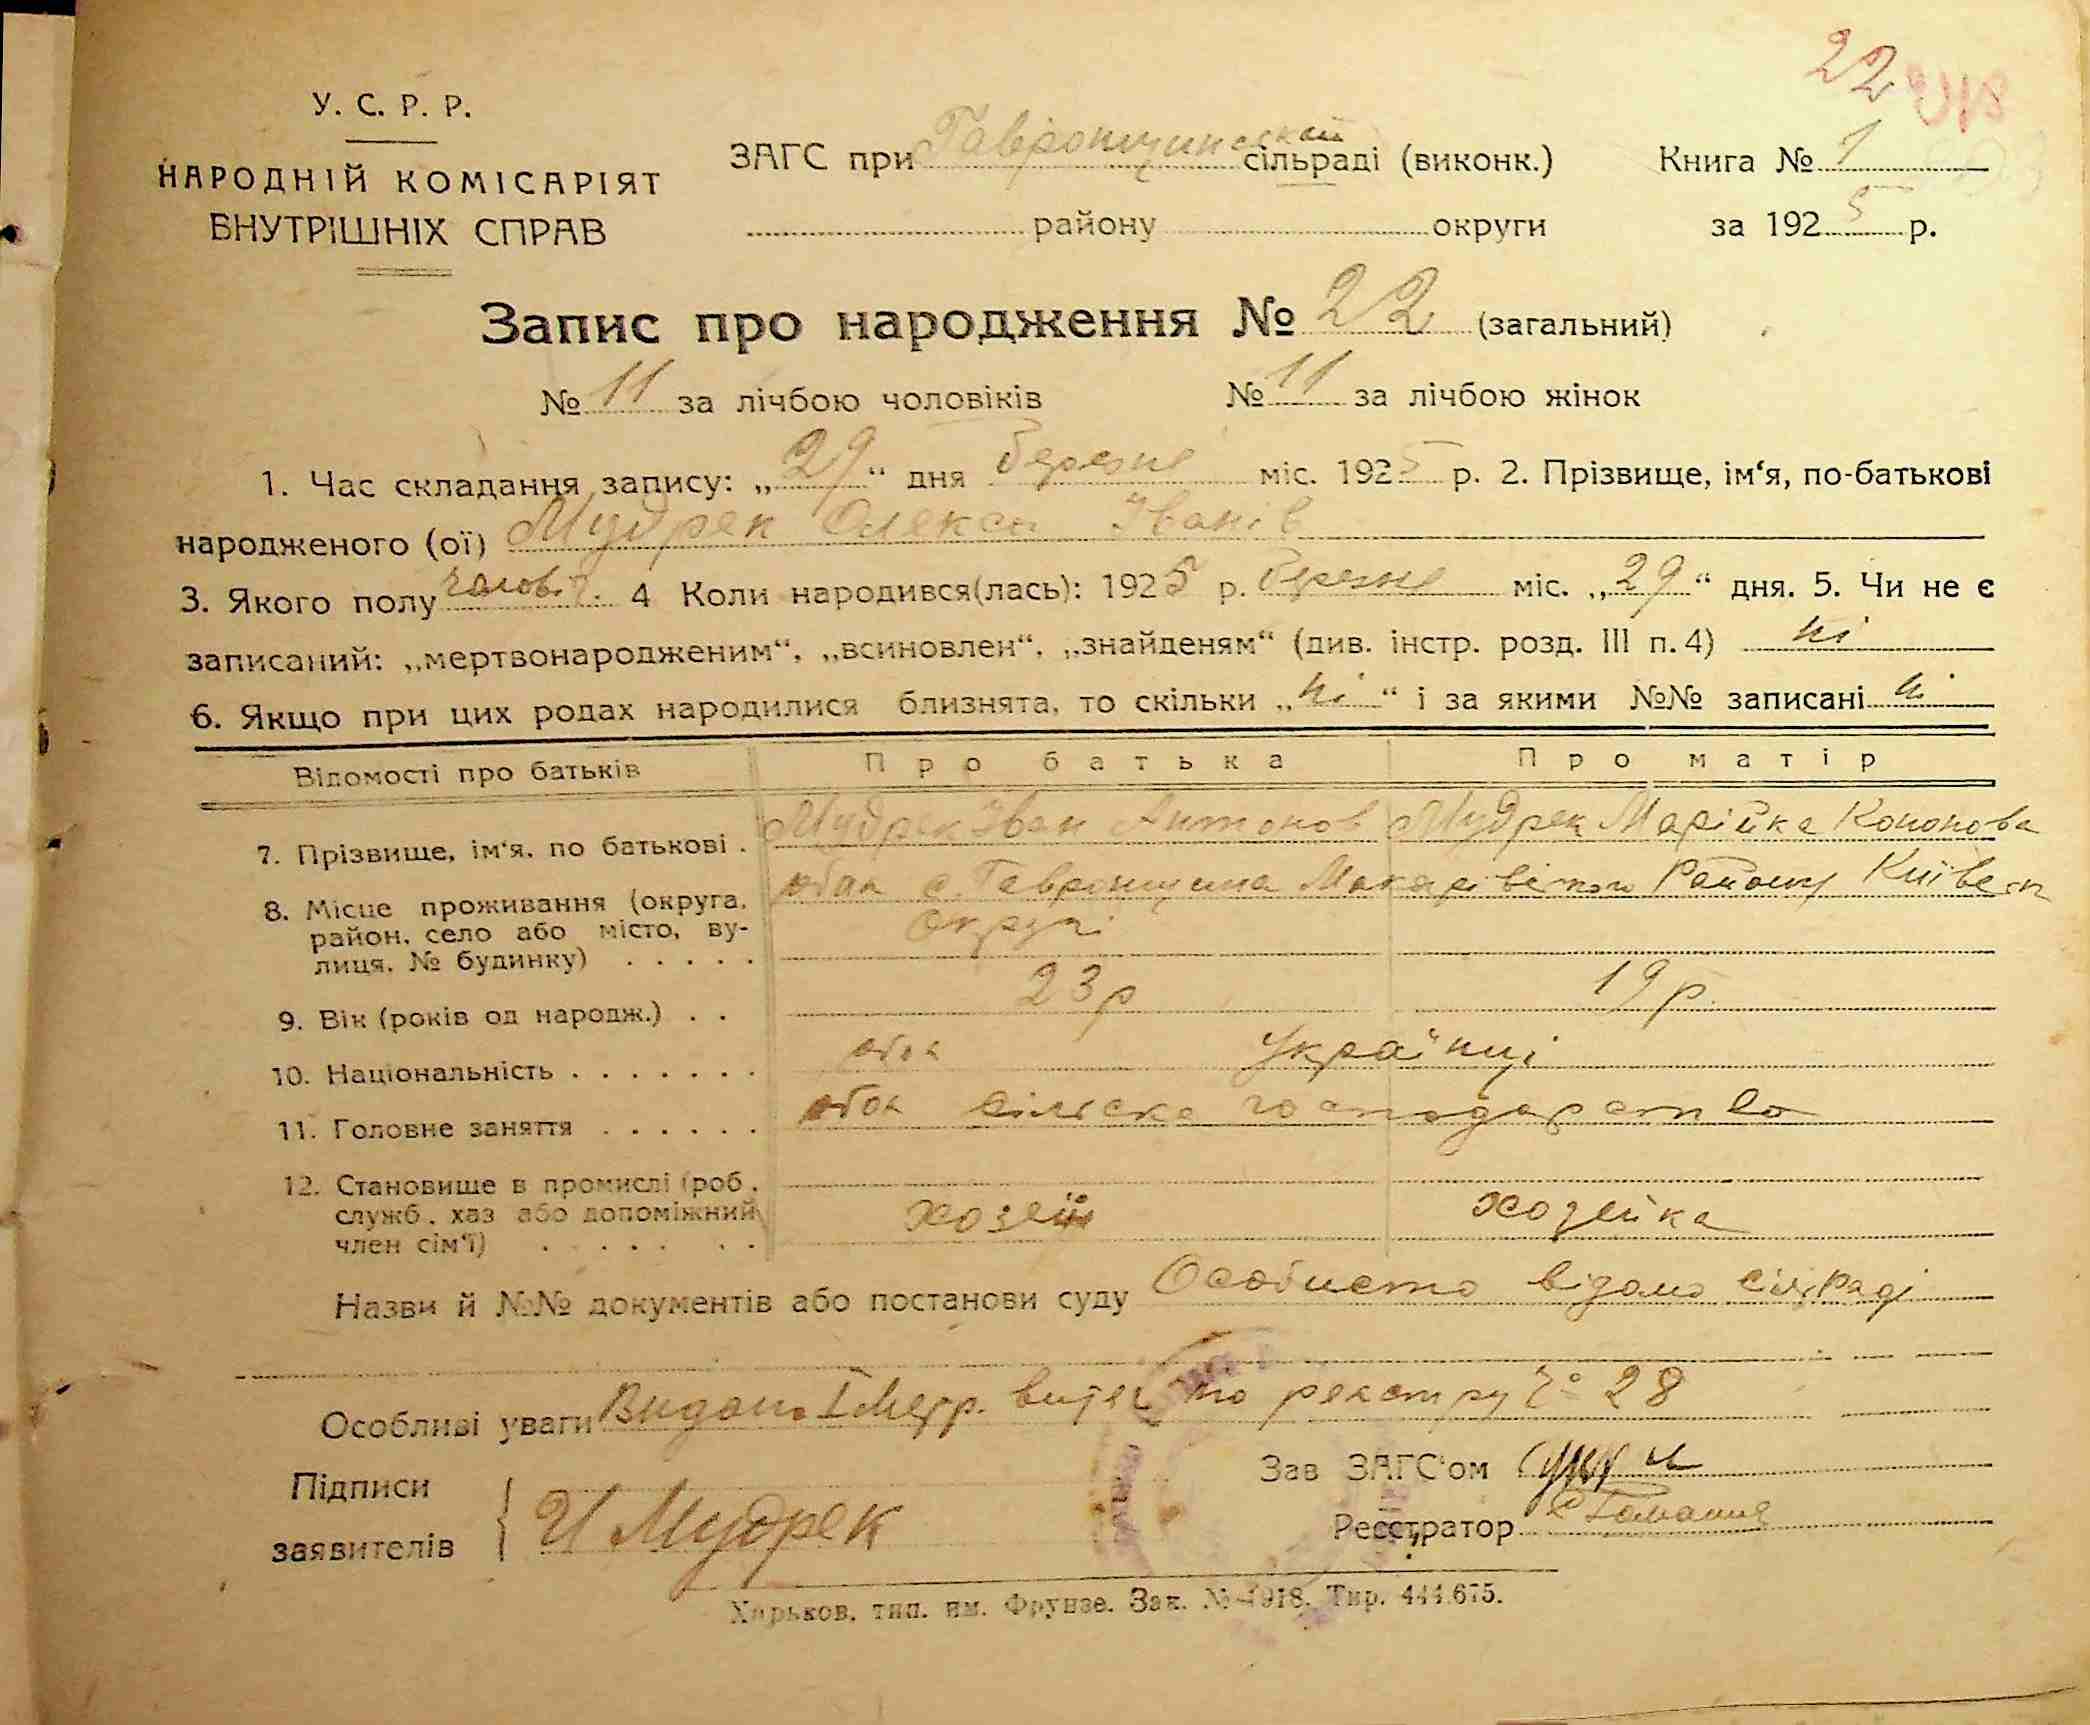 22
У. С. Р. Р.
НАРОДНІЙ КОМІСАРІЯТ
ВНУТРІШНІХ СПРАВ
ЗАГС при Гавронщинській сільраді (виконк.)
району округи
Книга № 1
за 1925 р.
Запис про народження № 22 (загальний)
№ 11 за лічбою чоловіків № 11 за лічбою жінок
1. Час складання запису: „29“ дня Березня міс. 1925 р. 2. Прізвище, ім‘я, по-батькові
народженого (ої) Мудрек Олекса Іванів
3. Якого полу чоловіч. 4 Коли народився(лась): 1925 р. Березня міс. „29“ дня. 5. Чи не є
записаний: „мертвонародженим“, „всиновлен“, „знайденям“ (див. інстр. розд. III п. 4) ні
6. Якщо при цих родах народилися близнята, то скільки „ні“ і за якими №№ записані ні
Відомості про батьків Про батька Про матір
7. Прізвище, ім‘я, по батькові . Мудрек Іван Антонов Мудрек Марійка Кононова
8. Місце проживання (округа, район, село або місто, вулиця, № будинку) . . . . . обоє с. Гавронщина Макарівського Району Київськ
округи
9. Вік (років од народж.) . . 23 р 19 р.
10. Національність . . . . . . . обоє Українці
11. Головне заняття . . . . . . обоє сільске господарство
12. Становище в промислі (роб., служб., хаз або допоміжний член сім‘ї) . . . . . . . хозяїн хозейка
Назви й №№ документів або постанови суду Особисто відомо сільраді
Особливі уваги Видано витяг по реєстру № 28
Підписи
заявителів
И Мудрек
Зав ЗАГС‘ом
Реєстратор
Харьков, тип. им. Фрунзе. Зак. № 4918. Тир. 444.675.